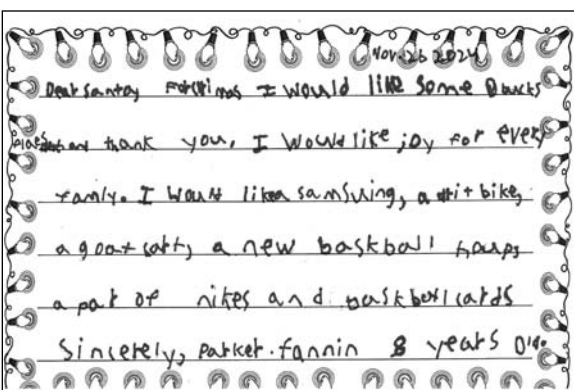 Nov. 26 2024
Dear Santa, I would like some Bucks
and thank you. I would like joy for every
famly. I would like a samsuing, a dirt bike,
a goat cart, a new baskball houps
a par of nikes and baskball cards
Sincerely, parker. fannin 8 years old.